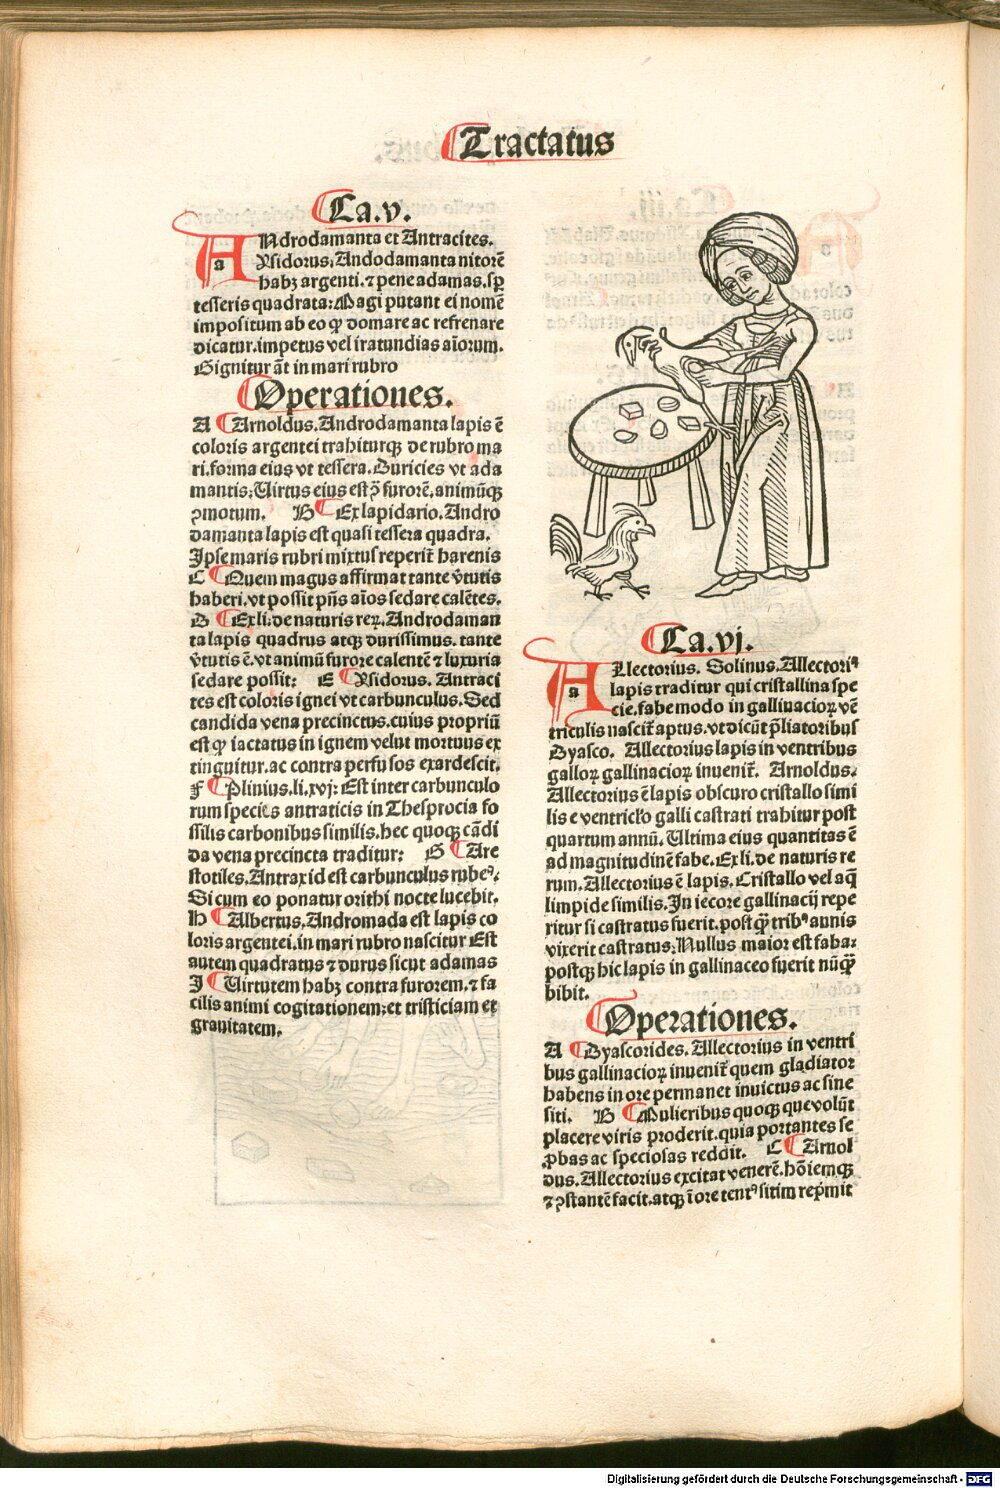 Tractatus
Ca.v.
ANdrodamanta et Antracites.
a
Ysidorus. Andodamanta nitorē
habꝫ argenti. ⁊ pene adamas. sꝑ
tesseris quadrata: Magi putant ei nomē
impositum ab eo ꝙ domare ac refrenare
dicatur. impetus vel iratundias aīorum.
Gignitur āt in mari rubro
Operationes.
A Arnoldus. Androdamanta lapis ē
coloris argentei trahiturqꝫ de rubro ma
ri. forma eius vt tessera. Duricies vt ada
mantis: Virtus eius est ꝓ furorē. animūqꝫ
ꝯmotum. B Ex lapidario. Andro
damanta lapis est quasi tessera quadra.
Ipse maris rubri mixtus reperit̄ harenis
C Quem magus affirmat tante v̓tutis
haberi. vt possit pn̄s aīos sedare calētes.
D Ex li: de naturis reꝝ. Androdaman
ta lapis quadrus atqꝫ durissimus. tante
v̓tutis ē. vt animū furore calentē ⁊ luxuria
sedare possit: E Ysidorus. Antraci
tes est coloris ignei vt carbunculus. Sed
candida vena precinctus. cuius propriū
est ꝙ iactatus in ignem velut mortuus ex
tinguitur. ac contra perfusos exardescit.
F Plinius. li. xvj: Est inter carbunculo
rum species antraticis in Thesprocia fo
ssilis carbonibus similis. hec quoqꝫ cādi
da vena precincta traditur: G Are
stotiles. Antrax id est carbunculus rubeꝰ.
Si cum eo ponatur orithi nocte lucebit.
H Albertus. Andromada est lapis co
loris argentei. in mari rubro nascitur Est
autem quadratus ⁊ durus sicut adamas
I Virtutem habꝫ contra furorem. ⁊ fa
cilis animi cogitationem: et tristiciam et
grauitatem.
Ca.vj.
ALlectorius. Solinus. Allectoriꝰ
a
lapis traditur qui cristallina spe
cie. fabe modo in gallinacioꝝ vē
triculis nascit̄ aptus. vt dicūt p̄liatoribus
Dyasco. Allectorius lapis in ventribus
galloꝝ gallinacioꝝ inuenit̄. Arnoldus.
Allectorius ē lapis obscuro cristallo simi
lis e ventricl̓o galli castrati trahitur post
quartum annū. Ultima eius quantitas ē
ad magnitudinē fabe. Ex li. de naturis re
rum. Allectorius ē lapis. Cristallo vel aq̄
limpide similis. In iecore gallinacij repe
ritur si castratus fuerit. post qꝫ tribꝰ annis
vixerit castratus. Nullus maior est faba:
postqꝫ hic lapis in gallinaceo fuerit nūqꝫ
bibit.
Operationes.
A Dyascorides. Allectorius in ventri
bus gallinacioꝝ inuenit̄ quem gladiator
habens in ore permanet inuictus ac sine
siti. B Mulieribus quoqꝫ que volūt
placere viris proderit. quia portantes se
ꝓbas ac speciosas reddit. C Arnol
dus. Allectorius excitat venerē. hōiemqꝫ
⁊ ꝯstantē facit. atqꝫ ī ore tentꝰ sitim rep̄mit
Digitalisierung gefördert durch die Deutsche Forschungsgemeinschaft - DFG